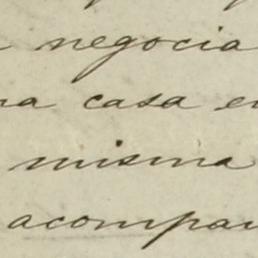 negocia
na casa en
misma
acompañ